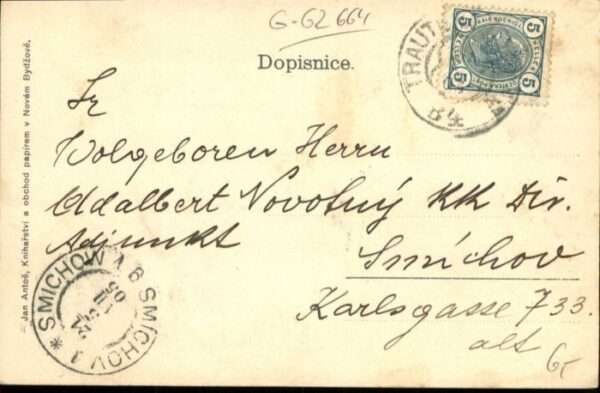 G-62 664
Dopisnice.
TRAUT
5 5
5 5
Sr
Wolgeboren Herrn
Adalbert Novotný KK Dir.
Adjunkt
Smíchov
Karlsgasse 733.
alt
6,-
SMICHOW 1 * SMÍCHOV 1
Jan Antoš, Knihařství a obchod papírem v Novém Bydžově.